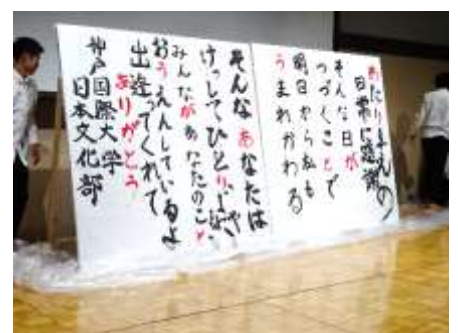 あたりまえの
日常に感謝
そんな日が
つづくことで
明日から私も
うまれかわる
そんなあなたは
けっしてひとりじゃない
みんながあなたのこと
おうえんしているよ
出逢ってくれて
ありがとう
神戸国際大学
日本文化部